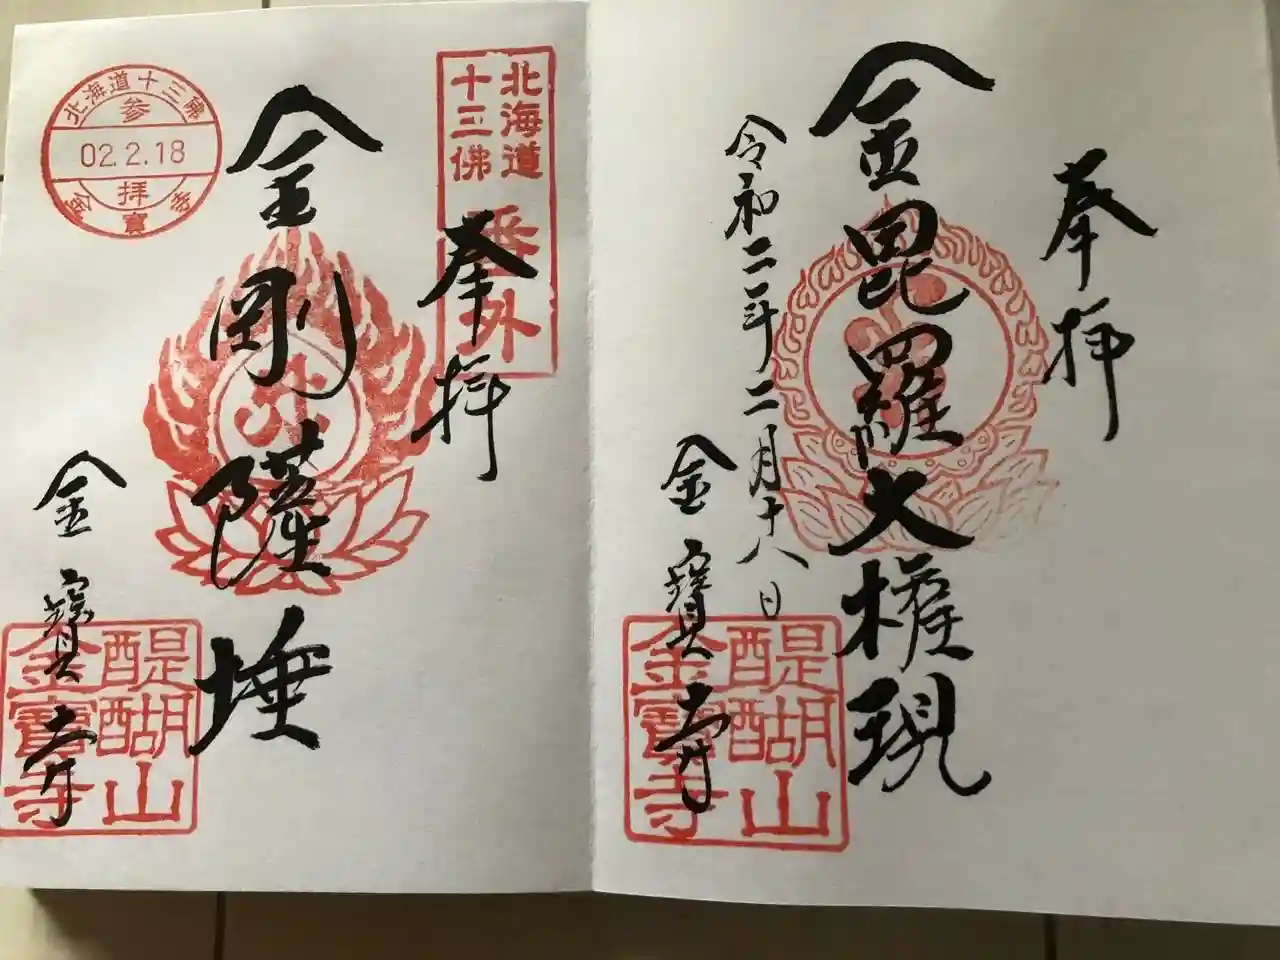 奉拝
金毘羅大権現
令和二年二月十八日
金寳寺
醍醐山
金寳寺
北海道
十三佛
番外
奉拝
金剛薩埵
北海道十三佛
参
02.2.18
拝
金寳寺
金寳寺
醍醐山
金寳寺